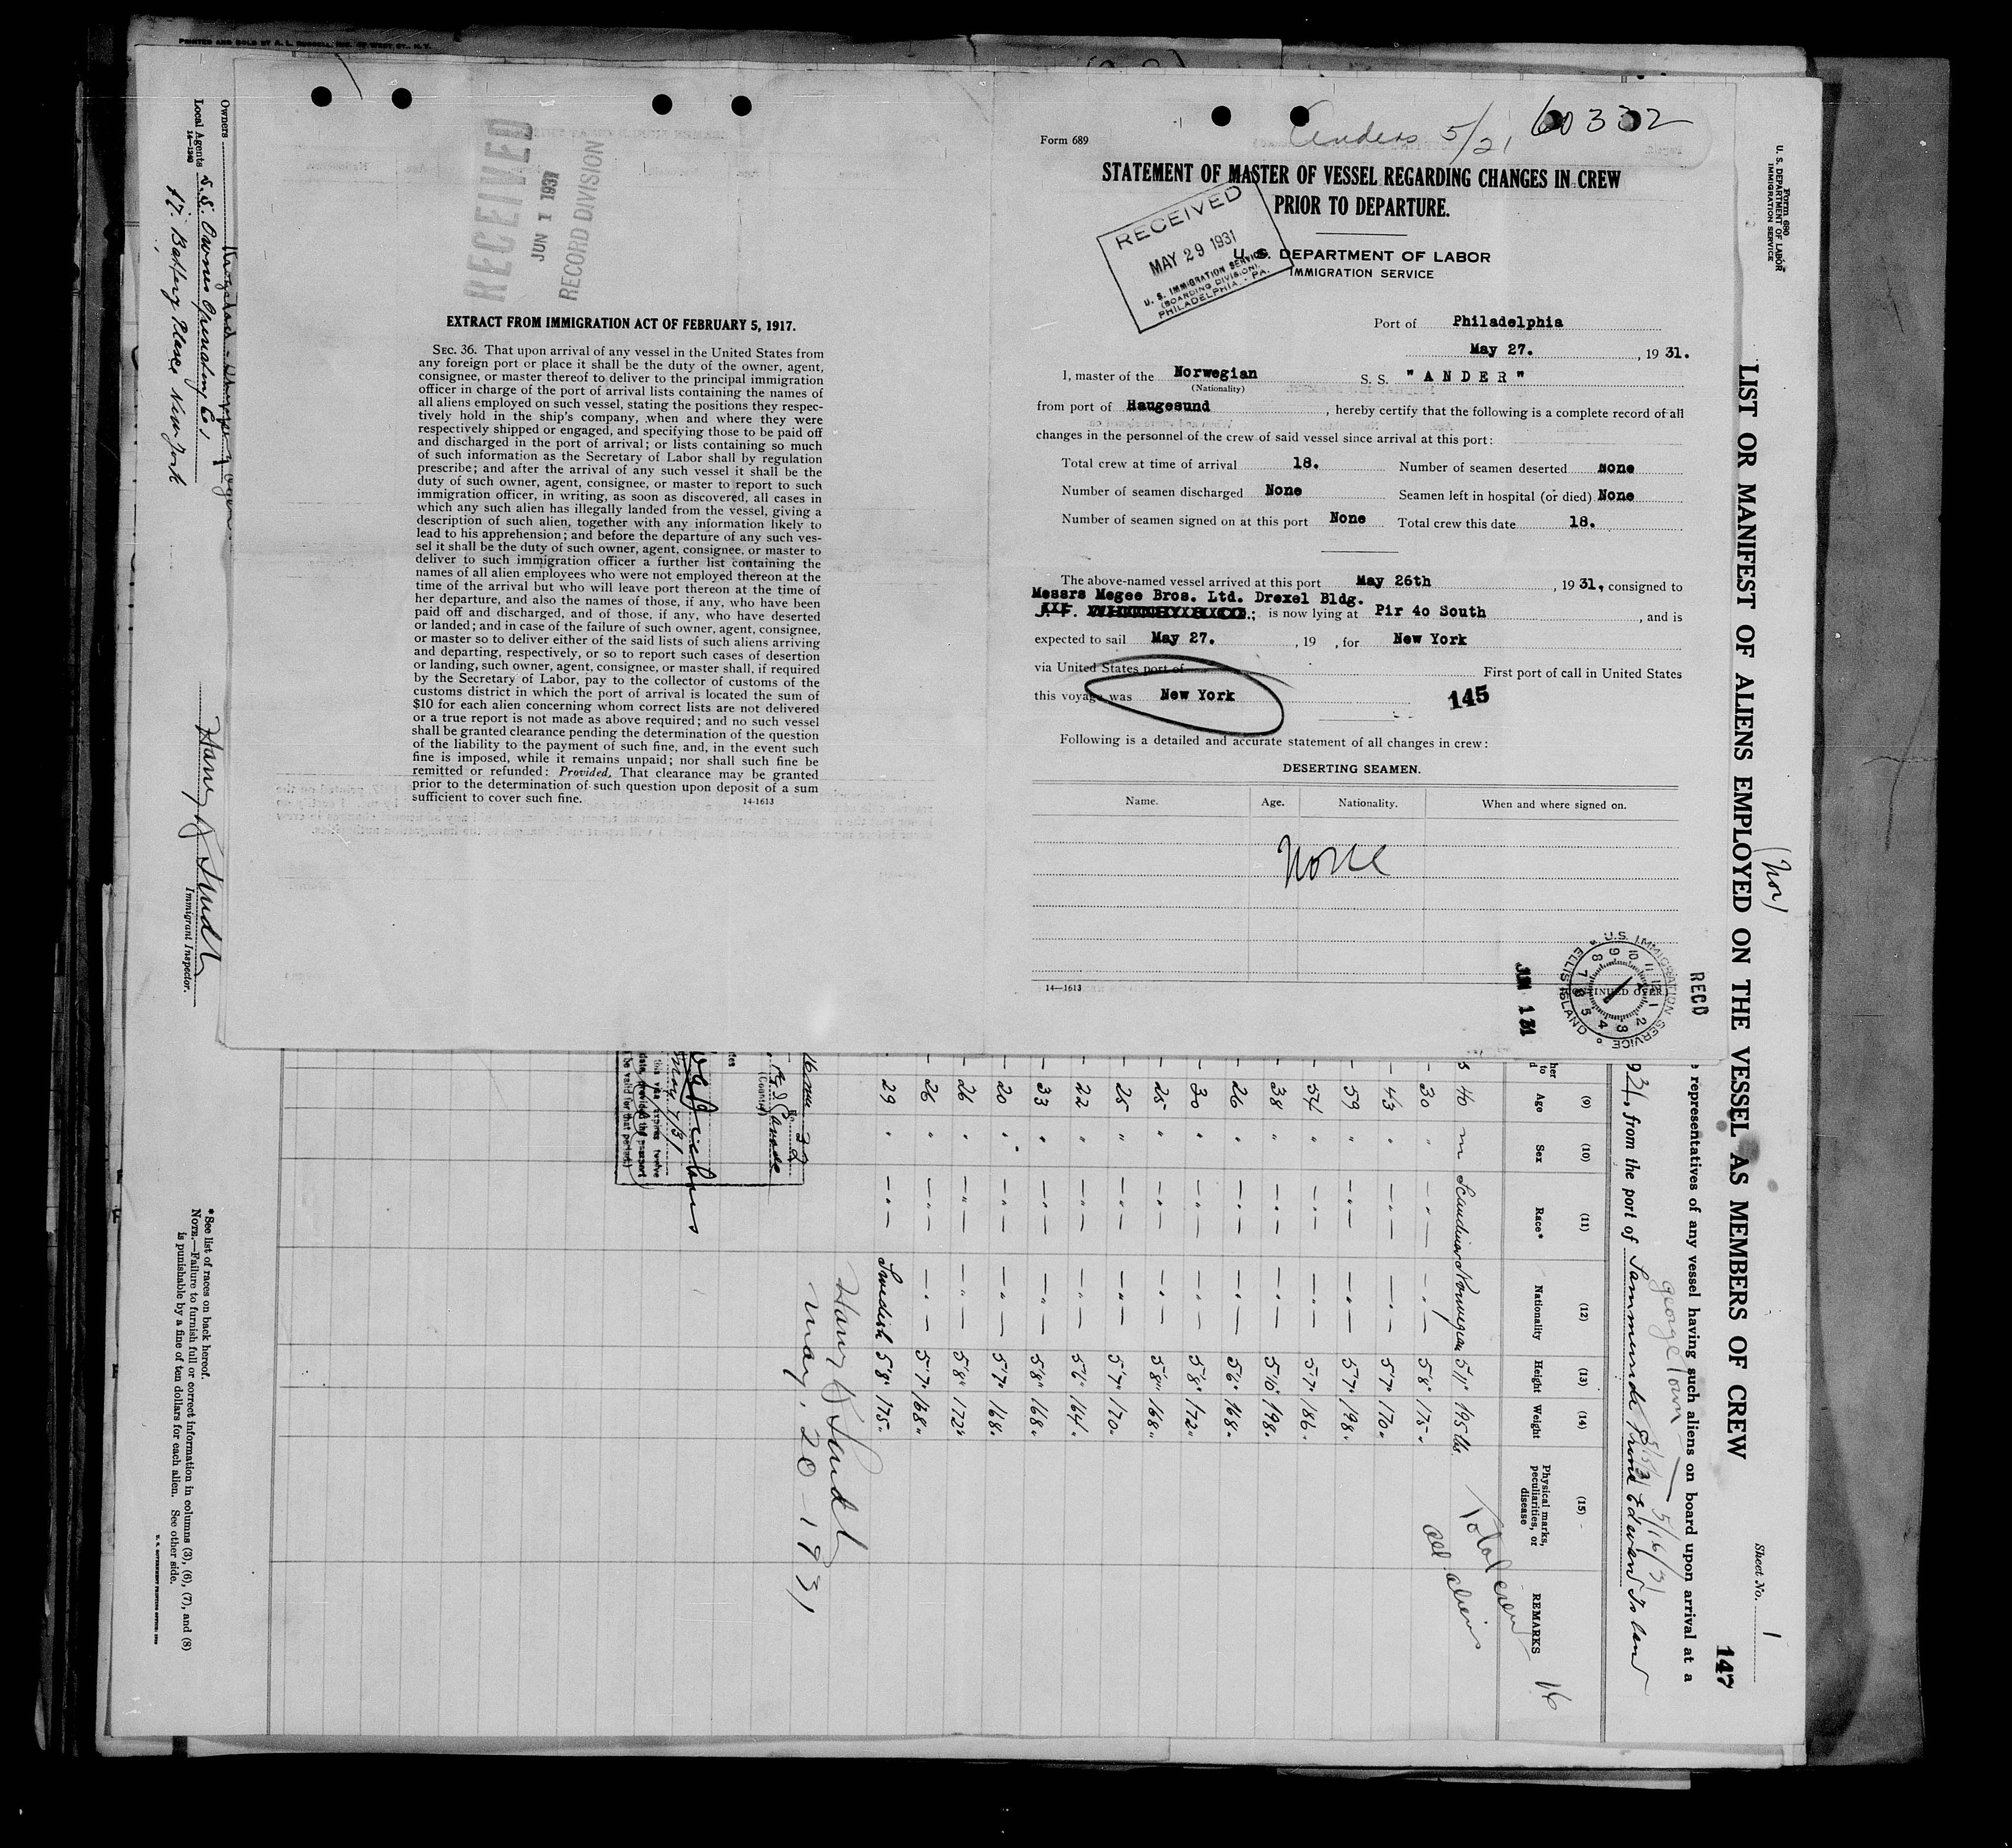 PRINTED AND SOLD BY A. L. RUSSELL, INC. 47 WEST ST., N.Y.
Form 689
Anders 5/21
60332
STATEMENT OF MASTER OF VESSEL REGARDING CHANGES IN CREW
PRIOR TO DEPARTURE.
U. S. DEPARTMENT OF LABOR
IMMIGRATION SERVICE
RECEIVED
MAY 29 1931
U. S. IMMIGRATION SERVICE
(BOARDING DIVISION)
PHILADELPHIA - PA.
Port of Philadelphia
May 27. , 19 31.
I, master of the Norwegian S. S. "ANDER"
(Nationality)
from port of Haugesund , hereby certify that the following is a complete record of all
changes in the personnel of the crew of said vessel since arrival at this port:
Total crew at time of arrival 18. Number of seamen deserted None
Number of seamen discharged None Seamen left in hospital (or died) None
Number of seamen signed on at this port None Total crew this date 18.
The above-named vessel arrived at this port May 26th , 19 31, consigned to
Messrs Megee Bros. Ltd. Drexel Bldg.
; is now lying at Pir 4o South , and is
expected to sail May 27. , 19 , for New York
via United States port of First port of call in United States
this voyage was New York
145
Following is a detailed and accurate statement of all changes in crew:
DESERTING SEAMEN.
Name. Age. Nationality. When and where signed on.
None
14—1613
(CONTINUED OVER)
U.S. IMMIGRATION SERVICE
ELLIS ISLAND
JUN 1 31
RECD
RECEIVED
JUN 1 1931
RECORD DIVISION
EXTRACT FROM IMMIGRATION ACT OF FEBRUARY 5, 1917.
SEC. 36. That upon arrival of any vessel in the United States from
any foreign port or place it shall be the duty of the owner, agent,
consignee, or master thereof to deliver to the principal immigration
officer in charge of the port of arrival lists containing the names of
all aliens employed on such vessel, stating the positions they respec-
tively hold in the ship's company, when and where they were
respectively shipped or engaged, and specifying those to be paid off
and discharged in the port of arrival; or lists containing so much
of such information as the Secretary of Labor shall by regulation
prescribe; and after the arrival of any such vessel it shall be the
duty of such owner, agent, consignee, or master to report to such
immigration officer, in writing, as soon as discovered, all cases in
which any such alien has illegally landed from the vessel, giving a
description of such alien, together with any information likely to
lead to his apprehension; and before the departure of any such ves-
sel it shall be the duty of such owner, agent, consignee, or master to
deliver to such immigration officer a further list containing the
names of all alien employees who were not employed thereon at the
time of the arrival but who will leave port thereon at the time of
her departure, and also the names of those, if any, who have been
paid off and discharged, and of those, if any, who have deserted
or landed; and in case of the failure of such owner, agent, consignee,
or master so to deliver either of the said lists of such aliens arriving
and departing, respectively, or so to report such cases of desertion
or landing, such owner, agent, consignee, or master shall, if required
by the Secretary of Labor, pay to the collector of customs of the
customs district in which the port of arrival is located the sum of
$10 for each alien concerning whom correct lists are not delivered
or a true report is not made as above required; and no such vessel
shall be granted clearance pending the determination of the question
of the liability to the payment of such fine, and, in the event such
fine is imposed, while it remains unpaid; nor shall such fine be
remitted or refunded: Provided, That clearance may be granted
prior to the determination of such question upon deposit of a sum
sufficient to cover such fine.
14-1613
Form 680
U. S. DEPARTMENT OF LABOR
IMMIGRATION SERVICE
(Nor)
Sheet No. 1
147
LIST OR MANIFEST OF ALIENS EMPLOYED ON THE VESSEL AS MEMBERS OF CREW
representatives of any vessel having such aliens on board upon arrival at a
georgetown — 5/16/31
931, from the port of Summerside Prince Edward Island
(9) (10) (11) (12) (13) (14) (15)
Age Sex Race* Nationality Height Weight Physical marks, peculiarities, or disease REMARKS
40 m Scandinav Norwegian 5'11" 195 lbs.
30 " — " — — " — 5'8" 175 "
43 " — " — — " — 5'7" 170 "
59 " — " — — " — 5'7" 198 "
54 " — " — — " — 5'7" 186 "
38 " — " — — " — 5'10" 198 "
26 " — " — — " — 5'6" 168 "
30 " — " — — " — 5'8" 172 "
25 " — " — — " — 5'8" 168 "
25 " — " — — " — 5'7" 170 "
22 " — " — — " — 5'6" 164 "
33 " — " — — " — 5'8" 168 "
20 " — " — — " — 5'7" 168 "
26 " — " — — " — 5'8" 172 "
26 " — " — — " — 5'7" 168 "
29 " — " — Swedish 5'8" 175 "
Total crew 16
all aliens
May, 20-1931
No. 32
Canada
(Country)
this visa expires twelve
date, provided the passport
be valid for that period.)
May 7/31
Owners
Local Agents
14—1240
17. Battery Place New York
Immigrant Inspector.
*See list of races on back hereof.
NOTE.—Failure to furnish full or correct information in columns (3), (6), (7), and (8)
is punishable by a fine of ten dollars for each alien. See other side.
U. S. GOVERNMENT PRINTING OFFICE